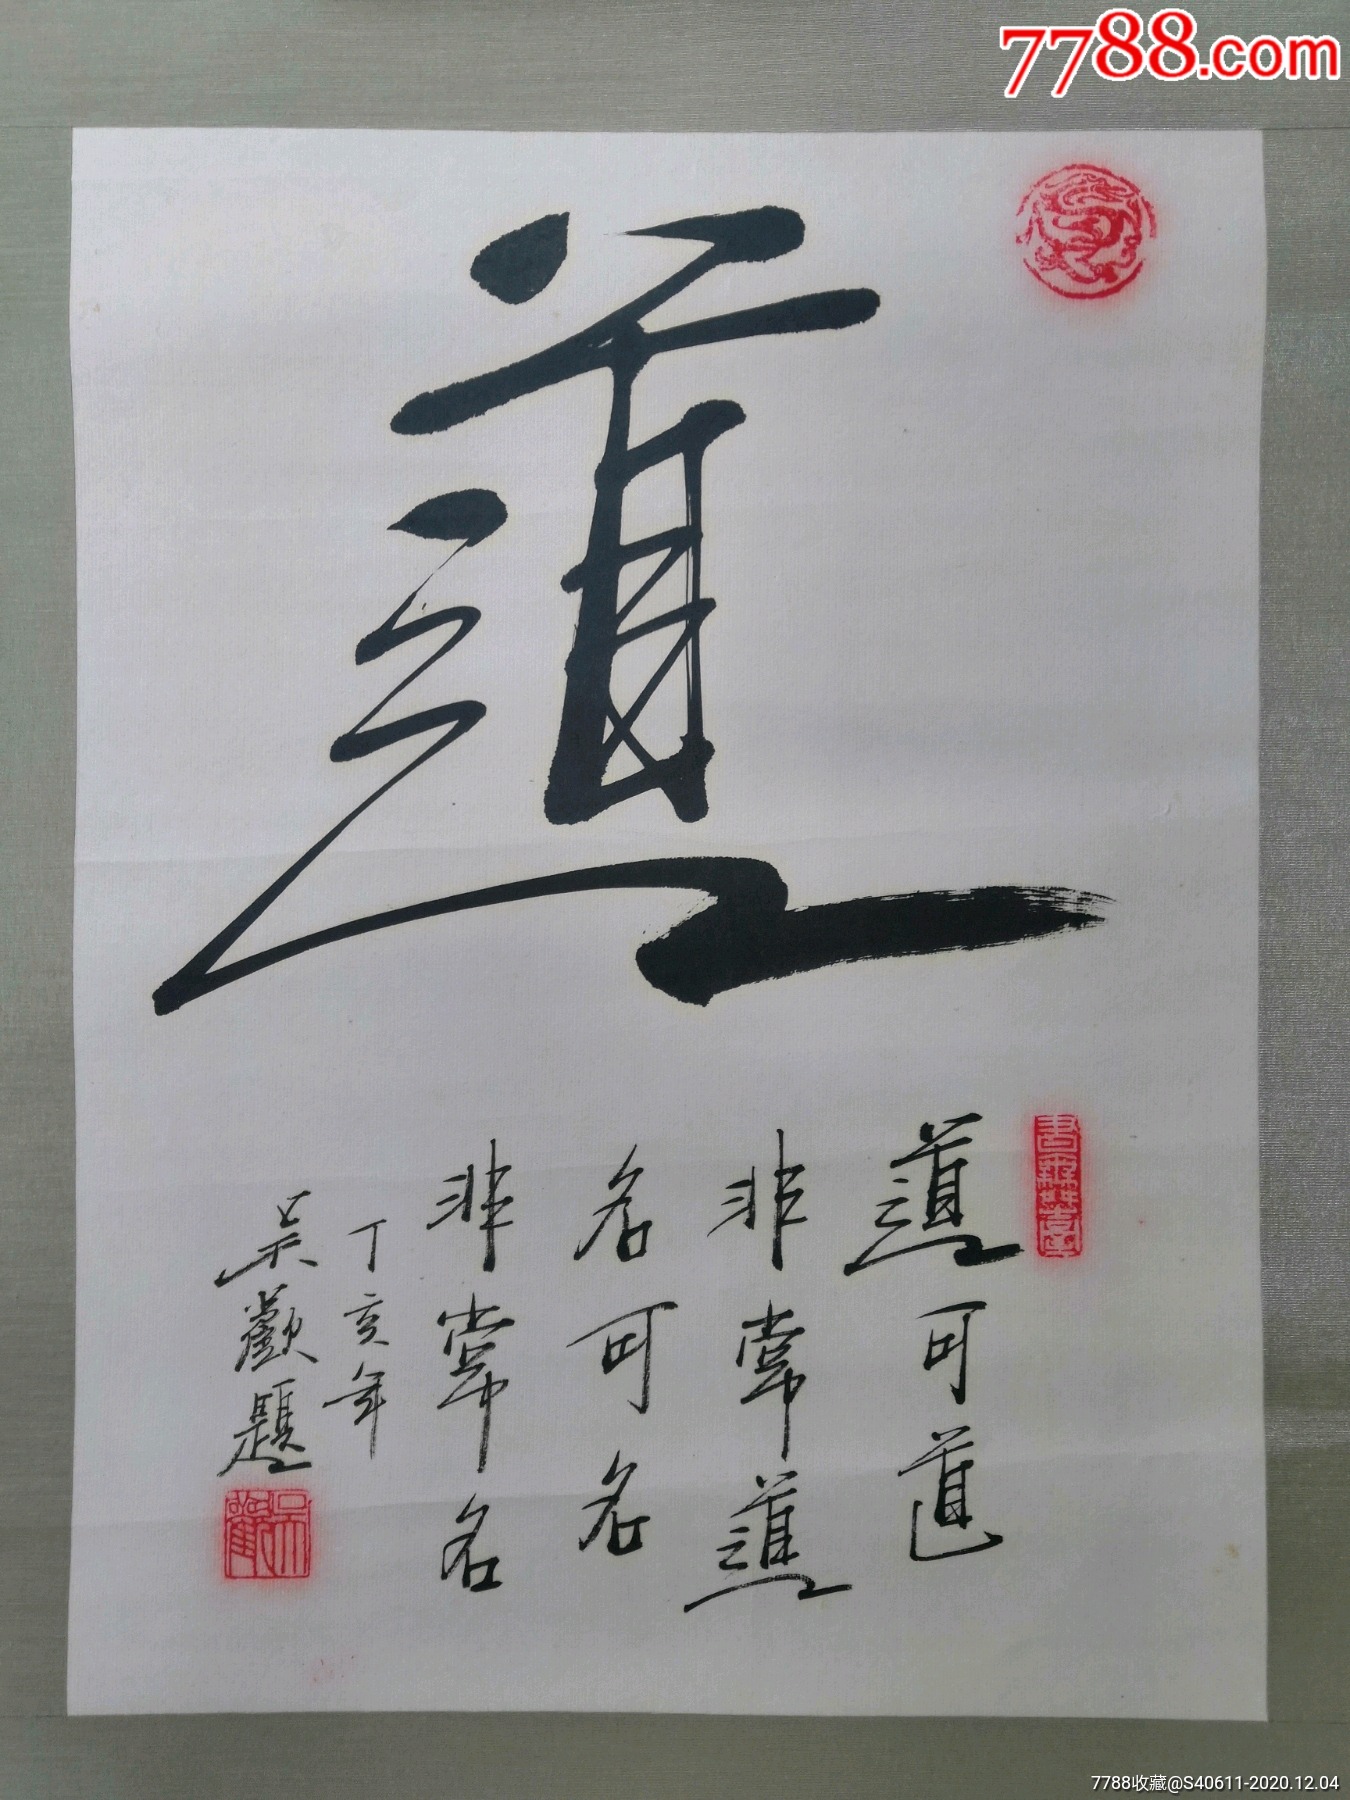 7788.com
道
道可道
非常道
名可名
非常名
丁亥年
吴欢题
7788收藏@S40611-2020.12.04